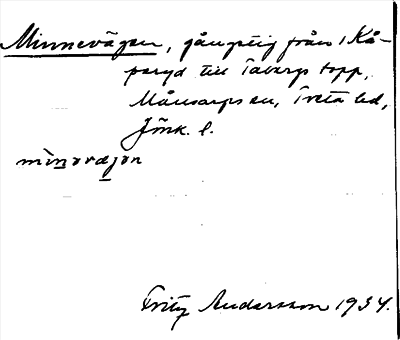 Minnevägen, gångstig från 1 Kå-
peryd till Tabergs topp,
Månsarps sn, Tveta hd,
Jönk. l.
minəvæjən
Fritz Andersson 1934.